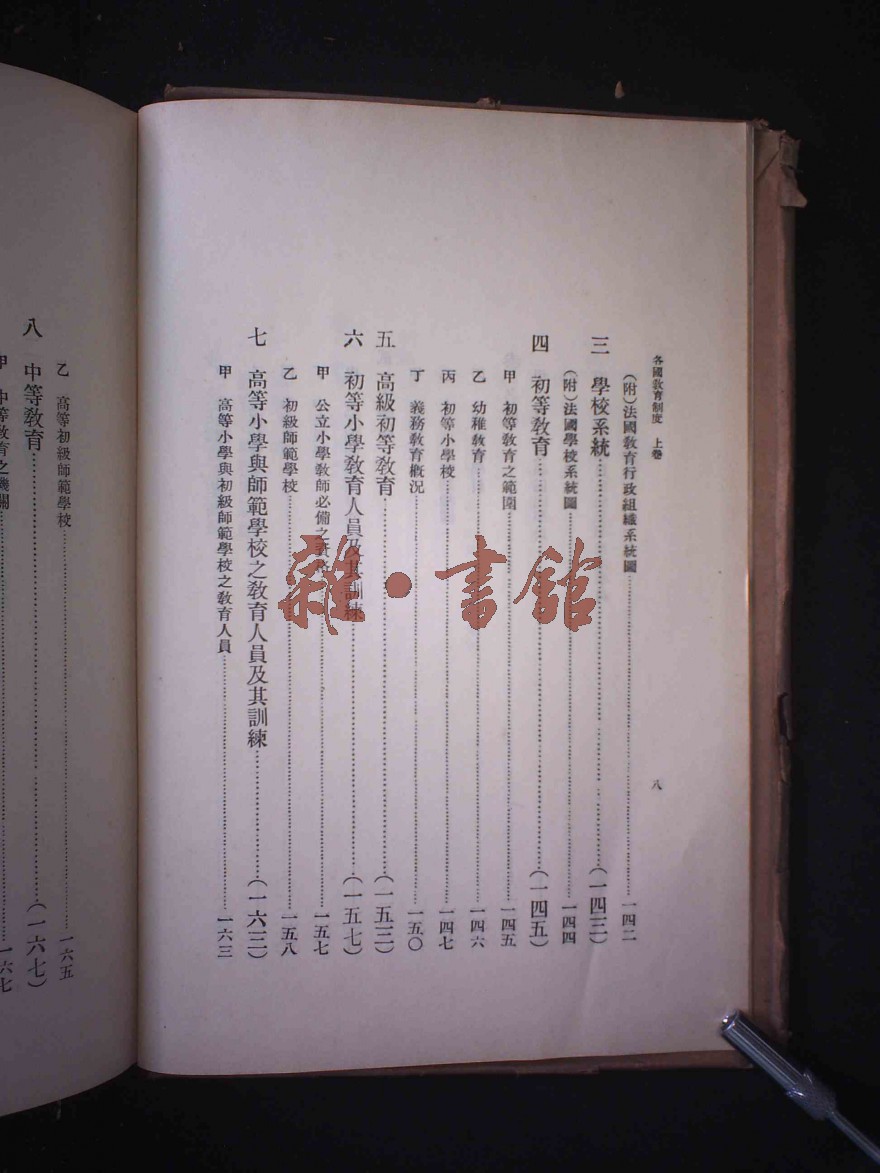 各國教育制度　上卷
八
(附)法國教育行政組織系統圖……一四二
三　學校系統……(一四三)
(附)法國學校系統圖……一四四
四　初等教育……(一四五)
甲　初等教育之範圍……一四五
乙　幼稚教育……一四六
丙　初等小學校……一四七
丁　義務教育概況……一五〇
五　高級初等教育……(一五三)
六　初等小學教育人員及其訓練……(一五七)
甲　公立小學教師必備之……一五七
乙　初級師範學校……一五八
七　高等小學與師範學校之教育人員及其訓練……(一六三)
甲　高等小學與初級師範學校之教育人員……一六三
乙　高等初級師範學校……一六五
八　中等教育……(一六七)
甲　中等教育之機關……一六七
雜·書館